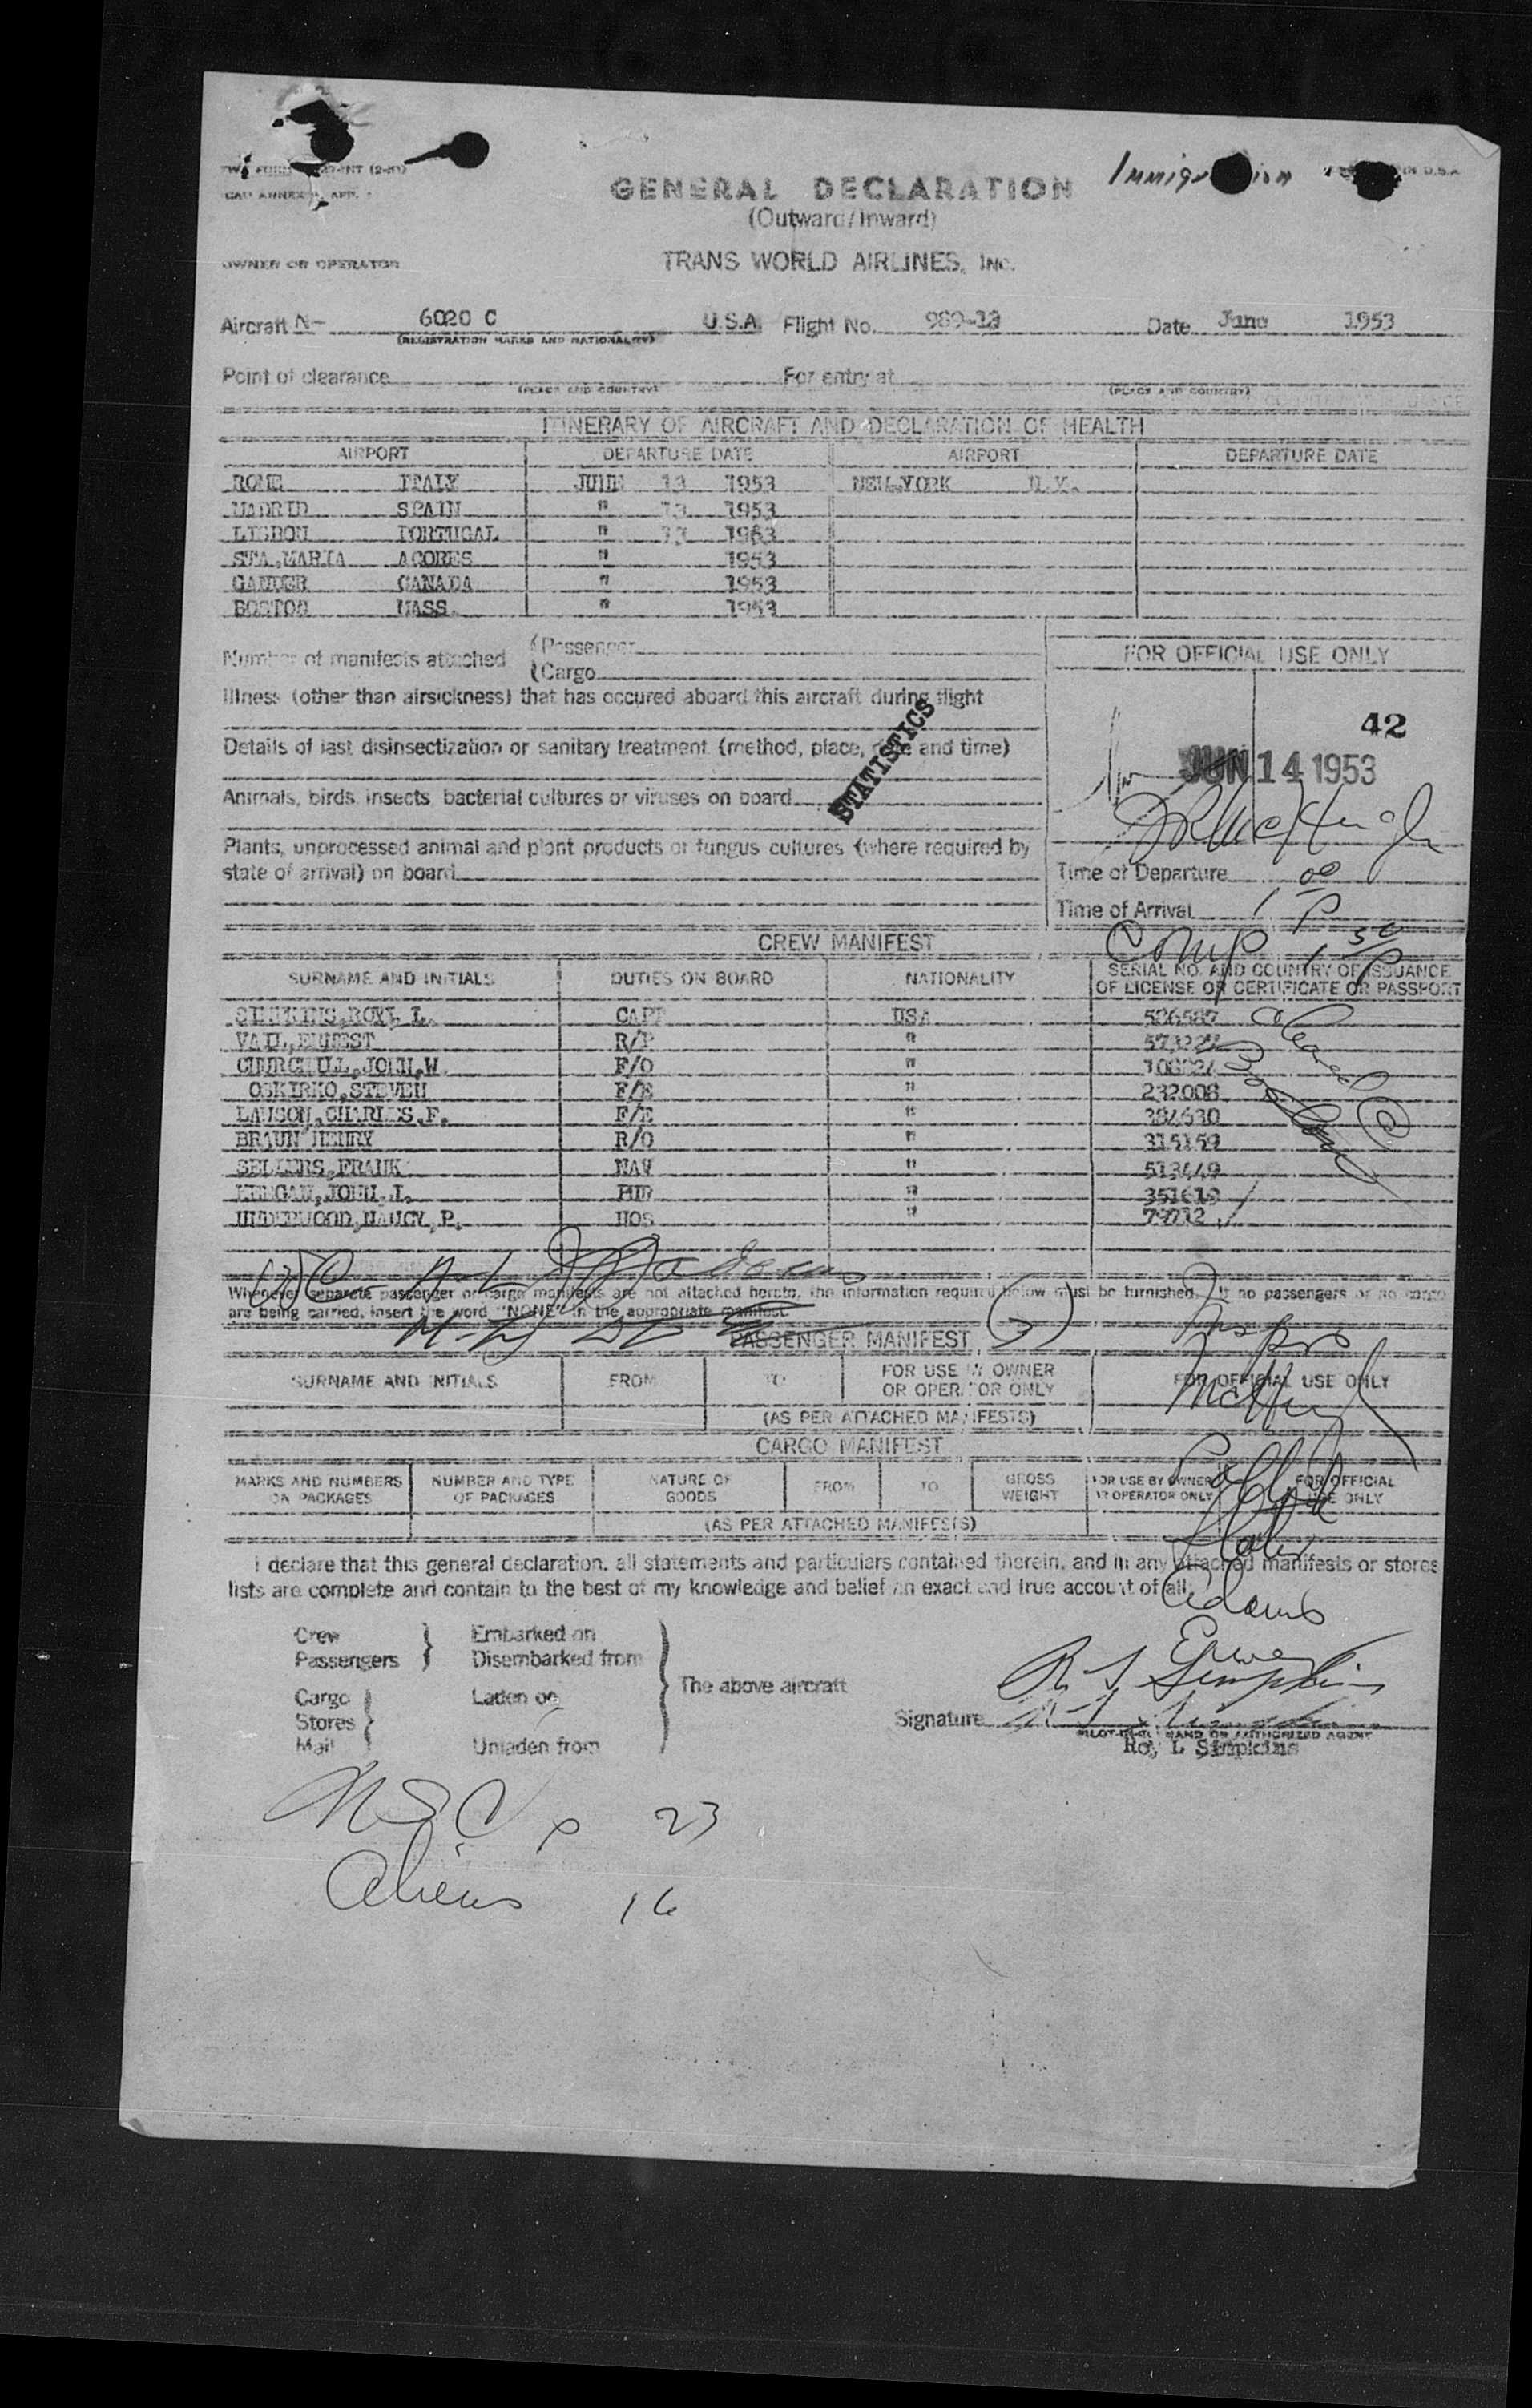 GENERAL DECLARATION
(Outward/Inward)
OWNER OR OPERATOR TRANS WORLD AIRLINES, INC.
Aircraft N- 6020 C U.S.A. Flight No. 989-13 Date June 1953
(REGISTRATION MARKS AND NATIONALITY)
Point of clearance For entry at
(PLACE AND COUNTRY) (PLACE AND COUNTRY)
ITINERARY OF AIRCRAFT AND DECLARATION OF HEALTH
AIRPORT DEPARTURE DATE AIRPORT DEPARTURE DATE
ROME ITALY JUNE 13 1953 NEW YORK N.Y.
MADRID SPAIN " 13 1953
LISBON PORTUGAL " 13 1953
STA.MARIA ACORES " 1953
GANDER CANADA " 1953
BOSTON MASS. " 1953
Number of manifests attached (Passenger
(Cargo
FOR OFFICIAL USE ONLY
Illness (other than airsickness) that has occured aboard this aircraft during flight
42
Details of last disinsectization or sanitary treatment (method, place, date and time)
STATISTICS
JUN 14 1953
Animals, birds, insects, bacterial cultures or viruses on board
Plants, unprocessed animal and plant products or fungus cultures (where required by
state of arrival) on board
Time of Departure
Time of Arrival
CREW MANIFEST
SURNAME AND INITIALS DUTIES ON BOARD NATIONALITY SERIAL NO. AND COUNTRY OF ISSUANCE
OF LICENSE OR CERTIFICATE OR PASSPORT
SIMPKINS,ROY, L. CAPT USA 506587
VAIL,ERNEST R/P "
CHURCHILL,JOHN,W. F/O "
OSKIRKO,STEVEN F/E " 232008
LAWSON,CHARLES,F. F/E " 384630
BRAUN HENRY R/O " 315159
SELLERS,FRANK NAV " 513449
KEEGAN,JOHN.J. PUR " 351619
UNDERWOOD,NANCY,P. HOS " 79712
Whenever separate passenger or cargo manifests are not attached hereto, the information required below must be furnished. If no passengers or no cargo
are being carried, insert the word "NONE" in the appropriate manifest.
PASSENGER MANIFEST
SURNAME AND INITIALS FROM TO FOR USE BY OWNER
OR OPERATOR ONLY FOR OFFICIAL USE ONLY
(AS PER ATTACHED MANIFESTS)
CARGO MANIFEST
MARKS AND NUMBERS
ON PACKAGES NUMBER AND TYPE
OF PACKAGES NATURE OF
GOODS FROM TO GROSS
WEIGHT FOR USE BY OWNER
OR OPERATOR ONLY FOR OFFICIAL
USE ONLY
(AS PER ATTACHED MANIFESTS)
I declare that this general declaration, all statements and particulars contained therein, and in any attached manifests or stores
lists are complete and contain to the best of my knowledge and belief an exact and true account of all.
Adams
Crew Embarked on
Passengers Disembarked from
The above aircraft
R L Simpkins
Cargo Laden on
Stores
Signature
Mail Unladen from
PILOT-IN-COMMAND OR AUTHORIZED AGENT
Roy L Simpkins
23
Aliens 16